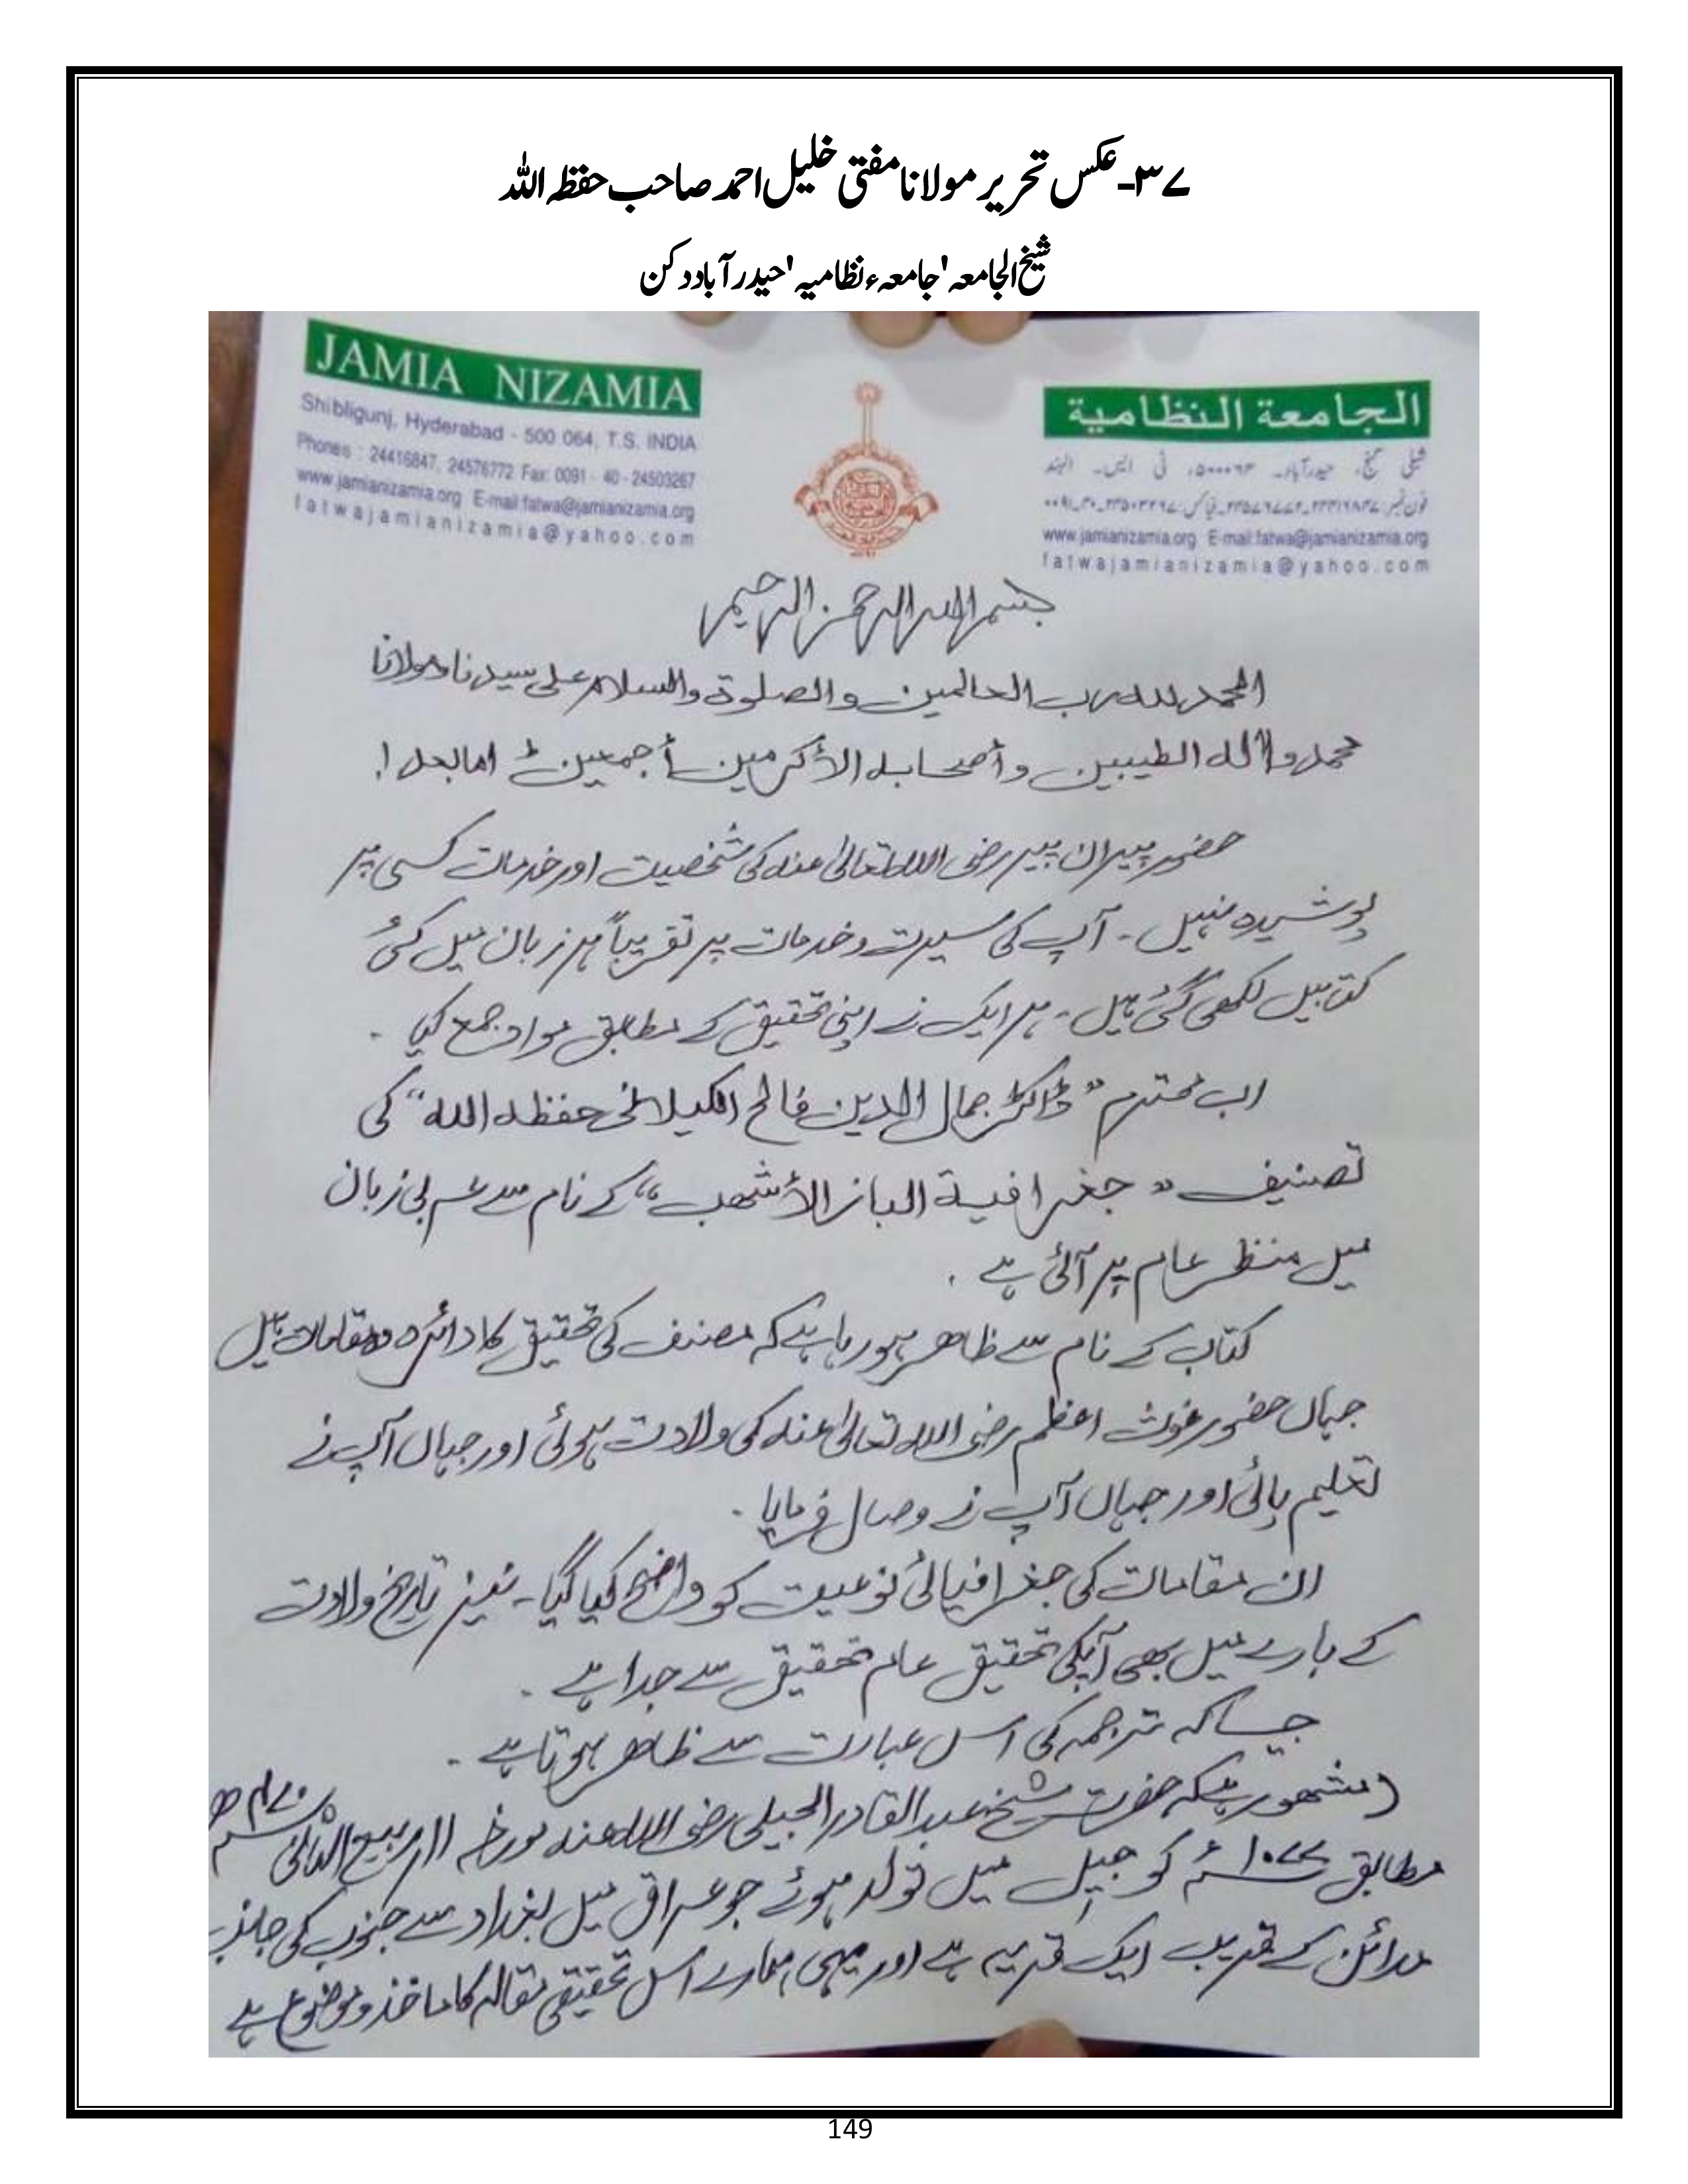 ۳۷۔عکس تحریر مولانا مفتی خلیل احمد صاحب حفظہ اللہ
شیخ الجامعہ 'جامعہء نظامیہ' حیدرآباد دکن
JAMIA NIZAMIA
Shibligunj, Hyderabad - 500 064, T.S. INDIA
Phones : 24416847, 24576772 Fax: 0091 - 40 - 24503267
www.jamianizamia.org E-mail:fatwa@jamianizamia.org
fatwajamianizamia@yahoo.com
الجامعة النظامية
شبلی گنج، حیدرآباد۔ ۵۰۰۰۶۴، ٹی ایس۔ الہند
فون نمبر: ۲۴۴۱۶۸۴۷، ۲۴۵۷۶۷۷۲ فیاکس: ۲۴۵۰۳۲۶۷۔۴۰۔۰۰۹۱
www.jamianizamia.org E-mail:fatwa@jamianizamia.org
fatwajamianizamia@yahoo.com
بسم الله الرحمن الرحيم
الحمد لله رب العالمين والصلوة والسلام على سيدنا ومولانا
محمد وآله الطيبين وأصحابه الأكرمين أجمعين اما بعد!
حضور پیران پیر رضی اللہ تعالیٰ عنہ کی شخصیت اور خدمات کسی پر
پوشیدہ نہیں۔ آپ کی سیرت و خدمات پر تقریباً ہر زبان میں کئی
کتابیں لکھی گئی ہیں۔ ہر ایک نے اپنی تحقیق کے مطابق مواد جمع کیا۔
اب محترم "ڈاکٹر جمال الدین فالح الکیلانی حفظہ اللہ" کی
تصنیف "جغرافیة الباز الأشهب" کے نام سے عربی زبان
میں منظر عام پر آئی ہے۔
کتاب کے نام سے ظاهر ہورہا ہے کہ مصنف کی تحقیق کا دائرہ وہ مقامات ہیں
جہاں حضور غوث اعظم رضی اللہ تعالیٰ عنہ کی ولادت ہوئی اور جہاں آپ نے
تعلیم پائی اور جہاں آپ نے وصال فرمایا۔
ان مقامات کی جغرافیائی نوعیت کو واضح کیا گیا۔ نیز تاریخ ولادت
کے بارے میں بھی آپکی تحقیق عام تحقیق سے جدا ہے۔
جیساکہ ترجمہ کی اس عبارت سے ظاهر ہوتا ہے۔
(مشہور ہیکہ حضرت شیخ عبدالقادر الجیلی رضی اللہ عنہ مورخہ ۱۱؍ ربیع الثانی ۴۷۰ھ
مطابق ۱۰۷۷ء کو جیل میں تولد ہوئے جو عراق میں بغداد سے جنوب کی جانب
مدائن کے قریب ایک قریہ ہے اور یہی ہمارے اس تحقیقی مقالہ کا ماخذ و موضوع ہے
149